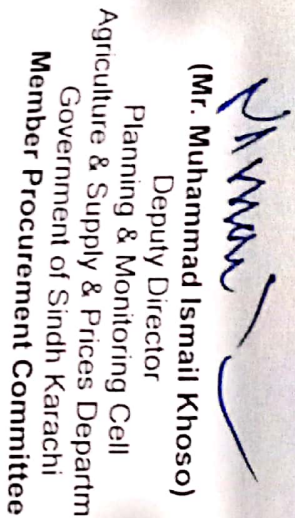 (Mr. Muhammad Ismail Khoso)
Deputy Director
Planning & Monitoring Cell
Agriculture & Supply & Prices Departm
Government of Sindh Karachi
Member Procurement Committee